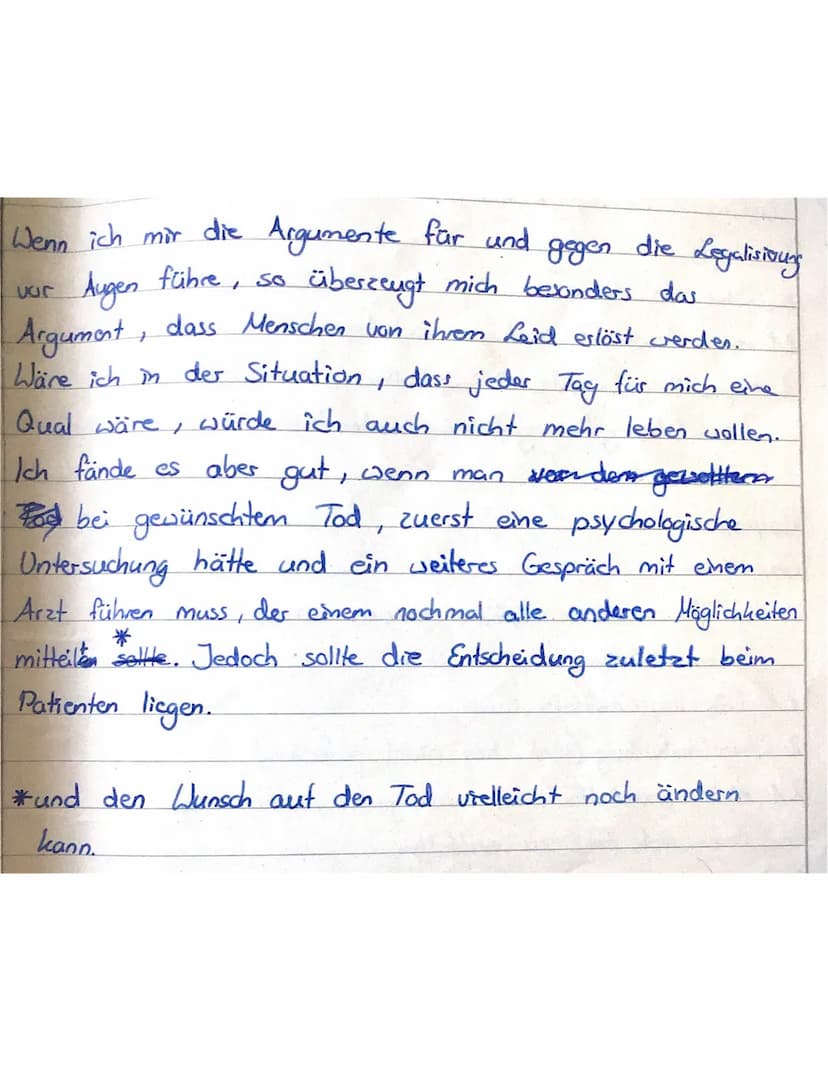 Wenn ich mir die Argumente für und gegen die Legalisirung
vor Augen führe, so überzeugt mich besonders das
Argument, dass Menschen von ihrem Leid erlöst werden.
Wäre ich in der Situation, dass jeder Tag für mich eine
Qual wäre, würde ich auch nicht mehr leben wollen.
Ich fände es aber gut, wenn man von dem gewollten
Tod bei gewünschtem Tod, zuerst eine psychologische
Untersuchung hätte und ein weiteres Gespräch mit einem
Arzt führen muss, der einem nochmal alle anderen Möglichkeiten
mitteilt * sollte. Jedoch sollte die Entscheidung zuletzt beim
Patienten liegen.
*und den Wunsch auf den Tod vielleicht noch ändern
kann.